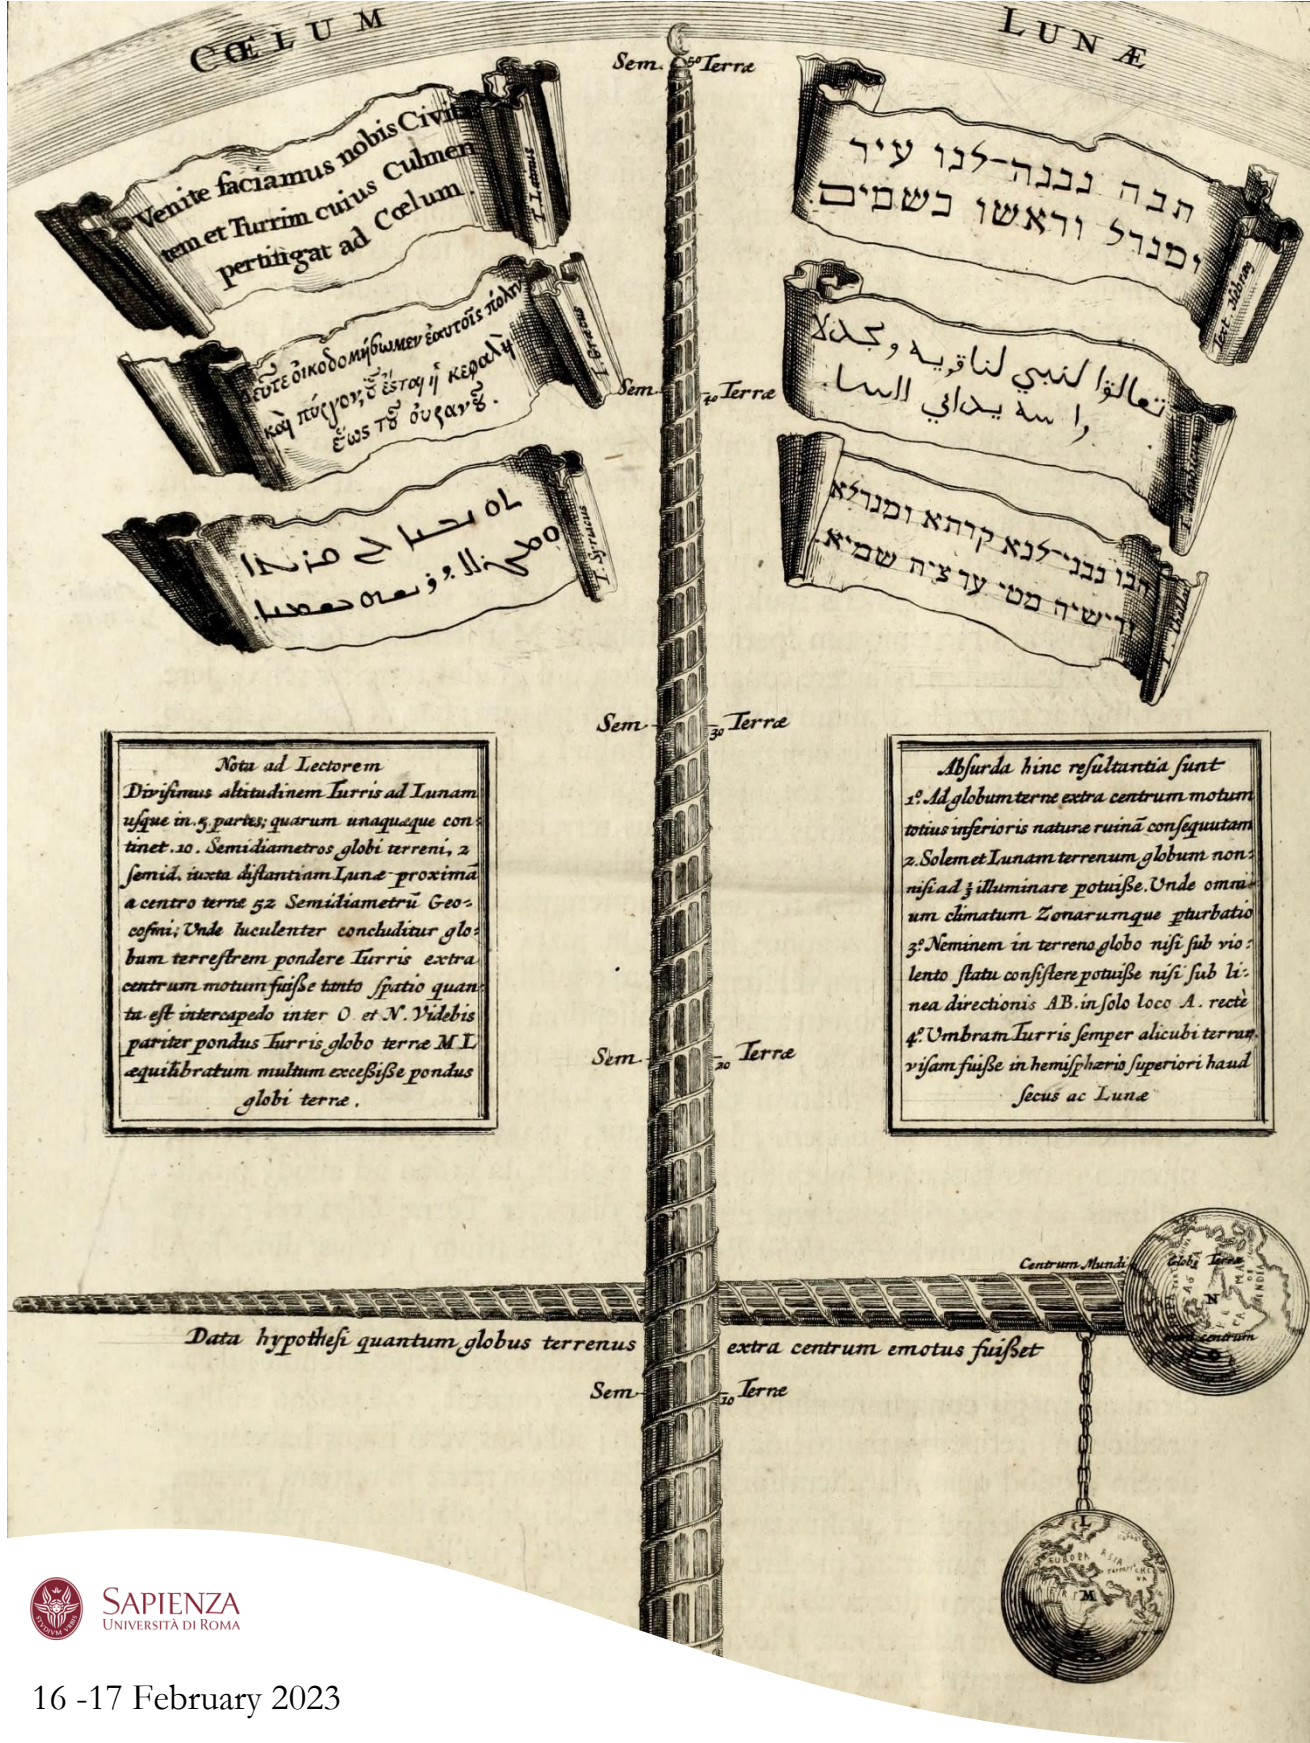 CŒLUM
LUNÆ
Sem. 50 Terræ
Venite faciamus nobis Civita
tem et Turrim cuius Culmen
pertingat ad Cœlum.
T. Latinus
δεῦτε οἰκοδομήσωμεν ἑαυτοῖς πόλιν
καὶ πύργον, οὗ ἔσται ἡ κεφαλὴ
ἕως τοῦ οὐρανοῦ.
T. Græcus
T. Syriacus
תבה נבנה־לנו עיר
ומגדל וראשו בשמים
Text. Hebræ
تعالوا لنبني لنا قريه ومجدلا
הבו נבני־לנא קרתא ומגדלא
ורישיה מטי עד צית שמיא.
Sem. 40 Terræ
Sem 30 Terræ
Nota ad Lectorem
Divisimus altitudinem Turris ad Lunam
usque in 5 partes; quarum unaquæque con=
tinet 10. Semidiametros globi terreni, 2
semid. iuxta distantiam Lunæ proximã
a centro terræ 52 Semidiametrũ Geo=
cosmi; Unde luculenter concluditur glo=
bum terrestrem pondere Turris extra
centrum motum fuisse tanto spatio quan=
ta est intercapedo inter O et N. Videbis
pariter pondus Turris globo terræ M L
æquilibratum multum excessisse pondus
globi terræ.
Absurda hinc resultantia sunt
1º. Ad globum terræ extra centrum motum
totius inferioris naturæ ruinã consequutam
2. Solem et Lunam terrenum globum non=
nisi ad ⅓ illuminare potuisse. Unde omni=
um climatum Zonarumque pturbatio
3º. Neminem in terreno globo nisi sub vio=
lento statu consistere potuisse nisi sub li=
nea directionis AB. in solo loco A. rectè
4º. Umbram Turris semper alicubi terrarum
visam fuisse in hemisphærio superiori haud
secus ac Lunæ
Sem 20 Terræ
Centrum Mundi
Globi Terræ
N
centrum
Data hypothesi quantum globus terrenus extra centrum emotus fuisset
Sem 10 Terræ
L
EUROPA ASIA
M
SAPIENZA
UNIVERSITÀ DI ROMA
STVDIVM VRBIS
16 -17 February 2023